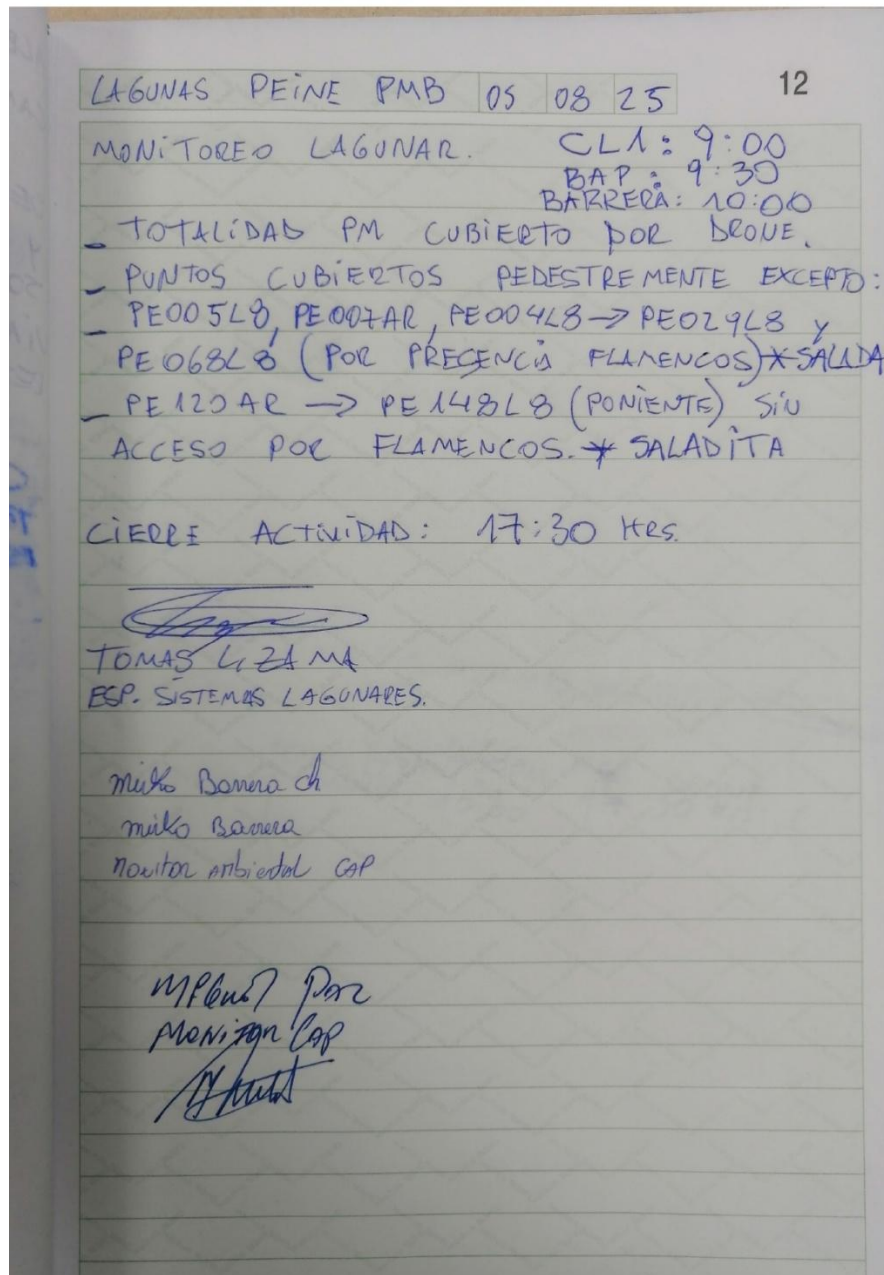 LAGUNAS PEINE PMB 05 08 25 12
MONITOREO LAGUNAR. CL1: 9:00
BAP: 9:30
BARRERA: 10:00
- TOTALIDAD PM CUBIERTO POR DRONE.
- PUNTOS CUBIERTOS PEDESTREMENTE EXCEPTO:
- PE005L8, PE007AR, PE004L8 -> PE029L8 y
PE068L8 (POR PRECENCIA FLAMENCOS) * SALADA
- PE120AR -> PE148L8 (PONIENTE) SIN
ACCESO POR FLAMENCOS. * SALADITA
CIERRE ACTIVIDAD: 17:30 HRS.
TOMAS LIZAMA
ESP. SISTEMAS LAGUNARES.
mirko Barrera ch
mirko Barrera
monitor ambiental CAP
Miguel Paz
Monitor CAP